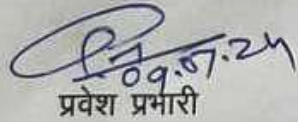 09.07.24
प्रवेश प्रभारी